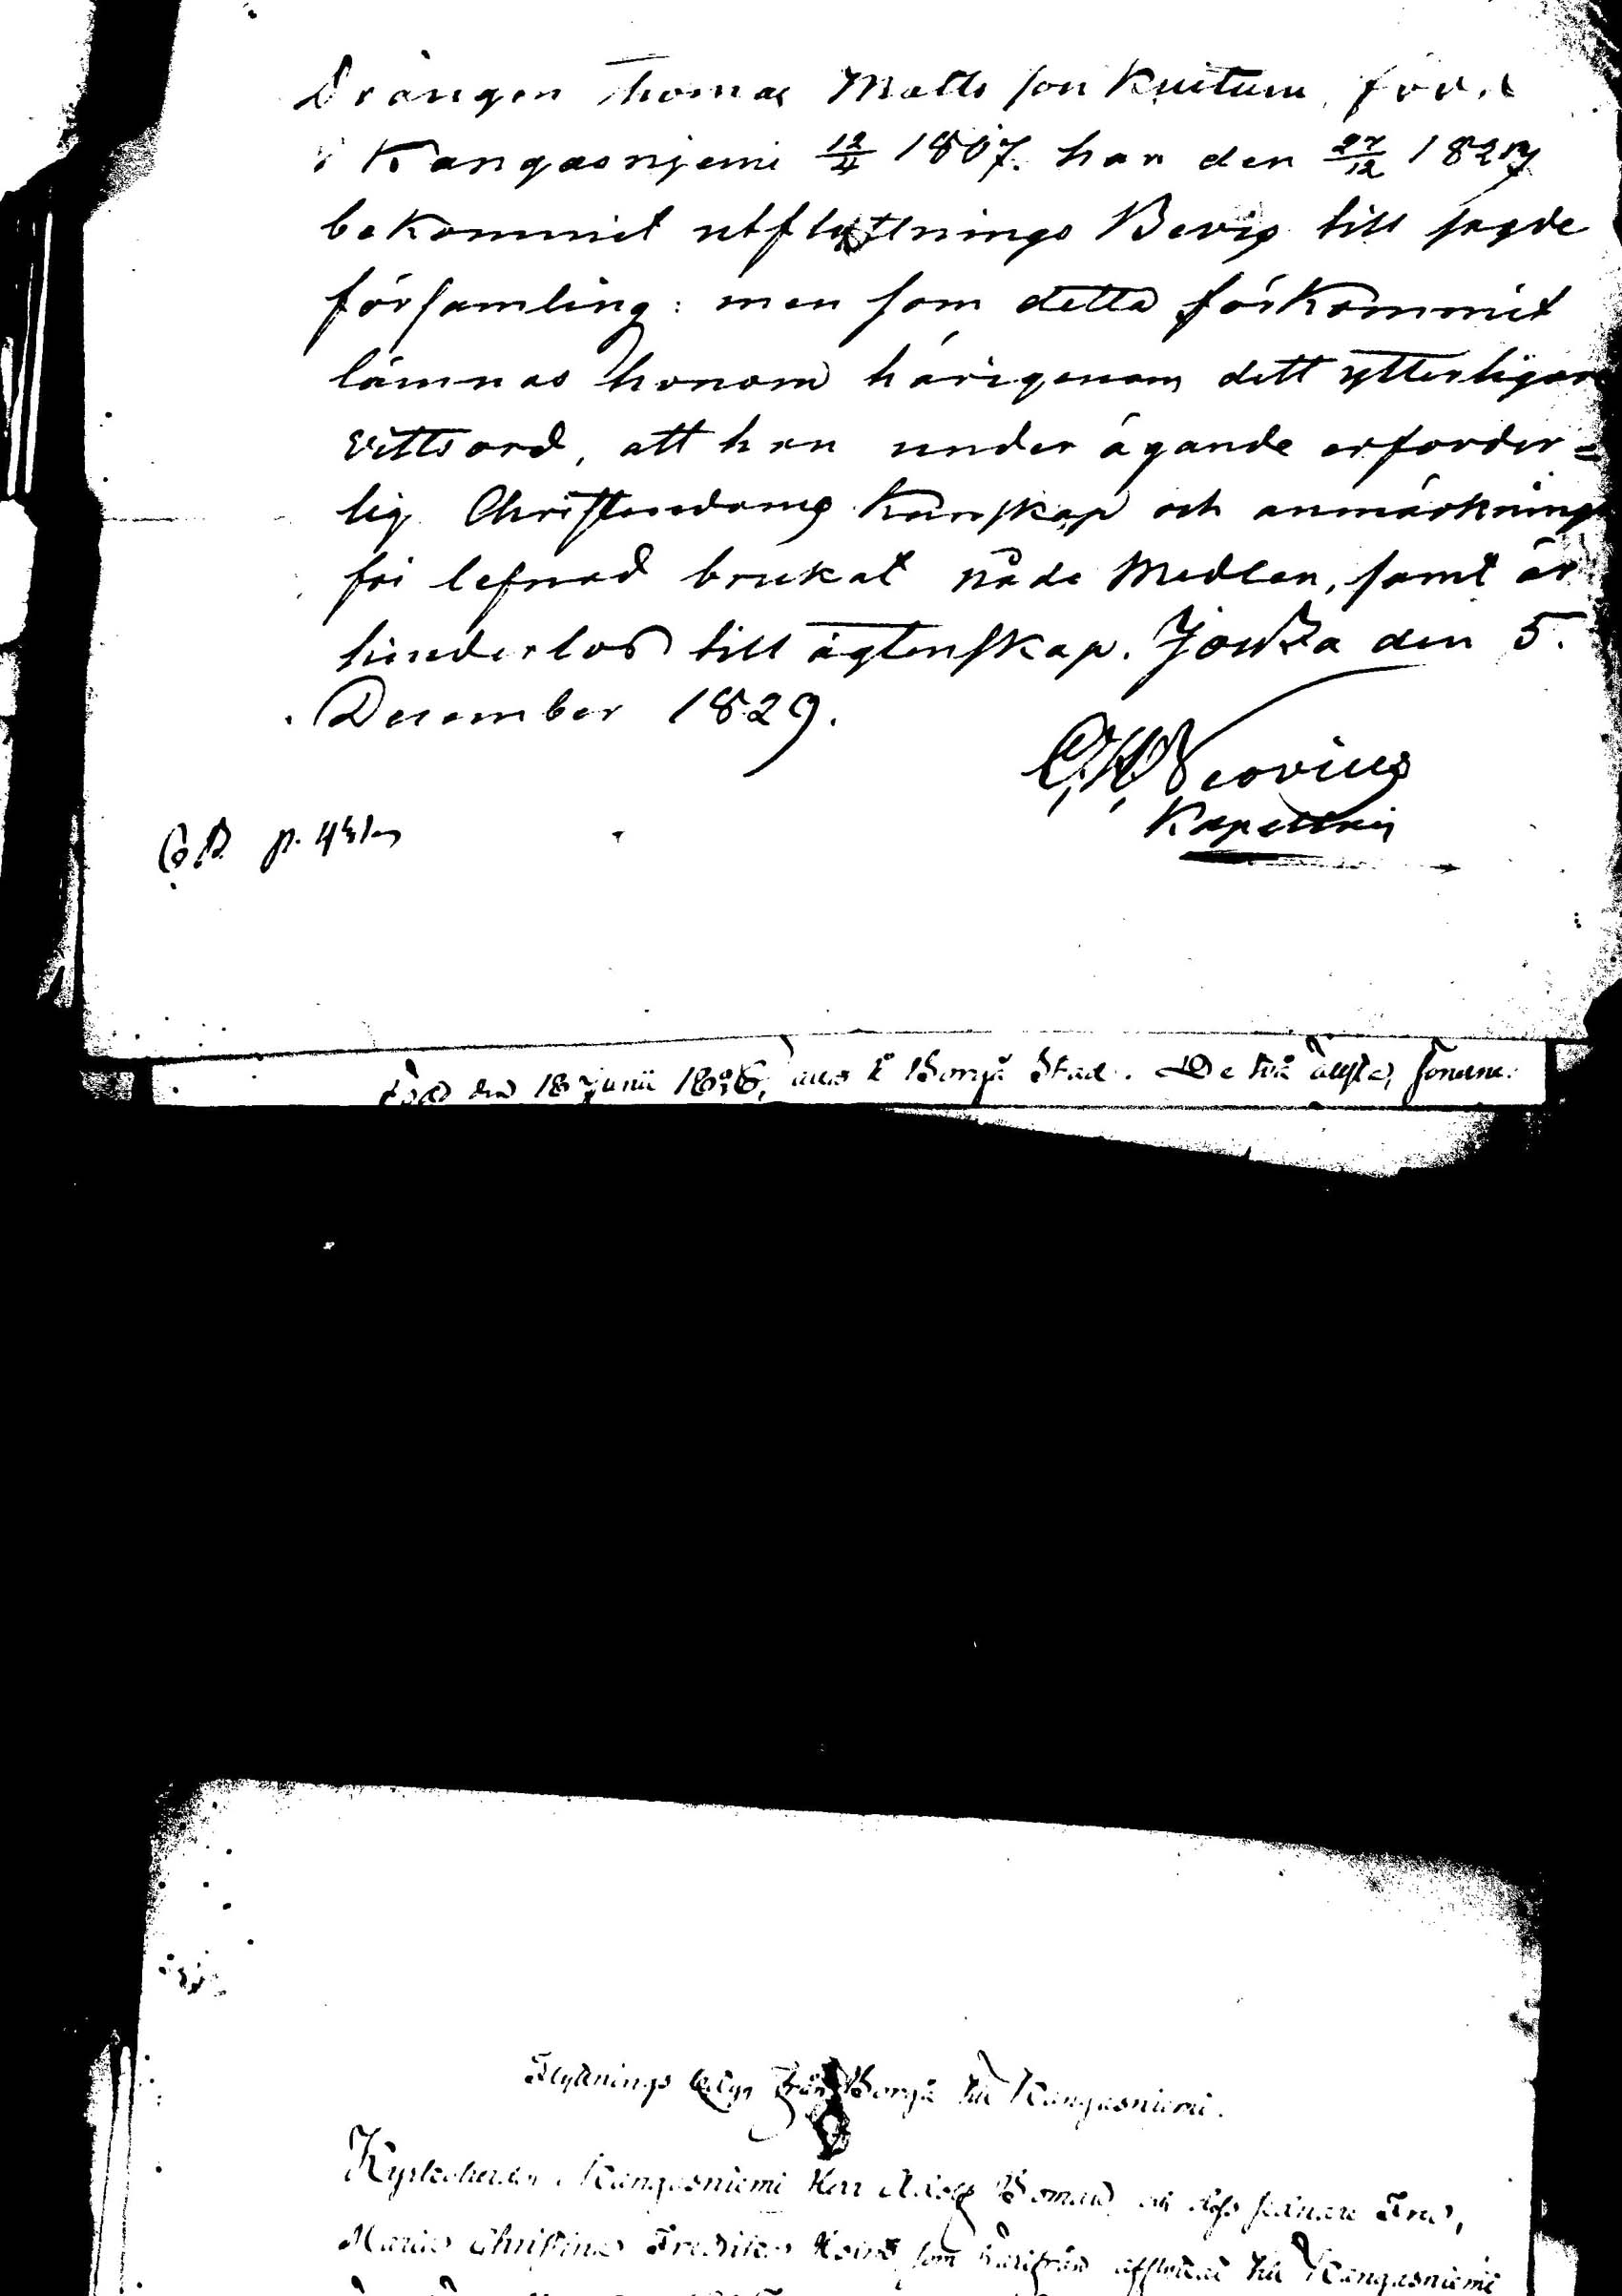 Drängen Thomas Matts son Kuitun, född
i Kangasnjemi 12/4 1807. har den 27/12 1827
bekommit utflyttnings Bevis till sagde
församling: men som detta förkommit
lämnas honom härigenom dett ytterligare
vittsord, att han under ägande erforder=
lig Christendoms kunskap och anmärknings
fri lefnad brukat nåde Medlen, samt är
hinderlös till ägtenskap. Jowza den 5.
December 1829.
Neovius
Kapellan
p.
född den 18 Junii 1806, alla i Borgå Stad. De två äldsta sönerne
Flyttnings Betyg från Borgå till Kangasniemi.
Kyrkoherden i Kangasniemi Herr Adolf Boman och dess Fru,
Maria Christina som härifrån afflyttat till Kangasniemi